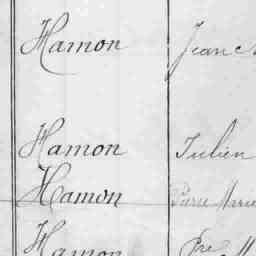 Hamon Jean
Hamon Julien
Hamon Pierre Marie
Hamon Pre M